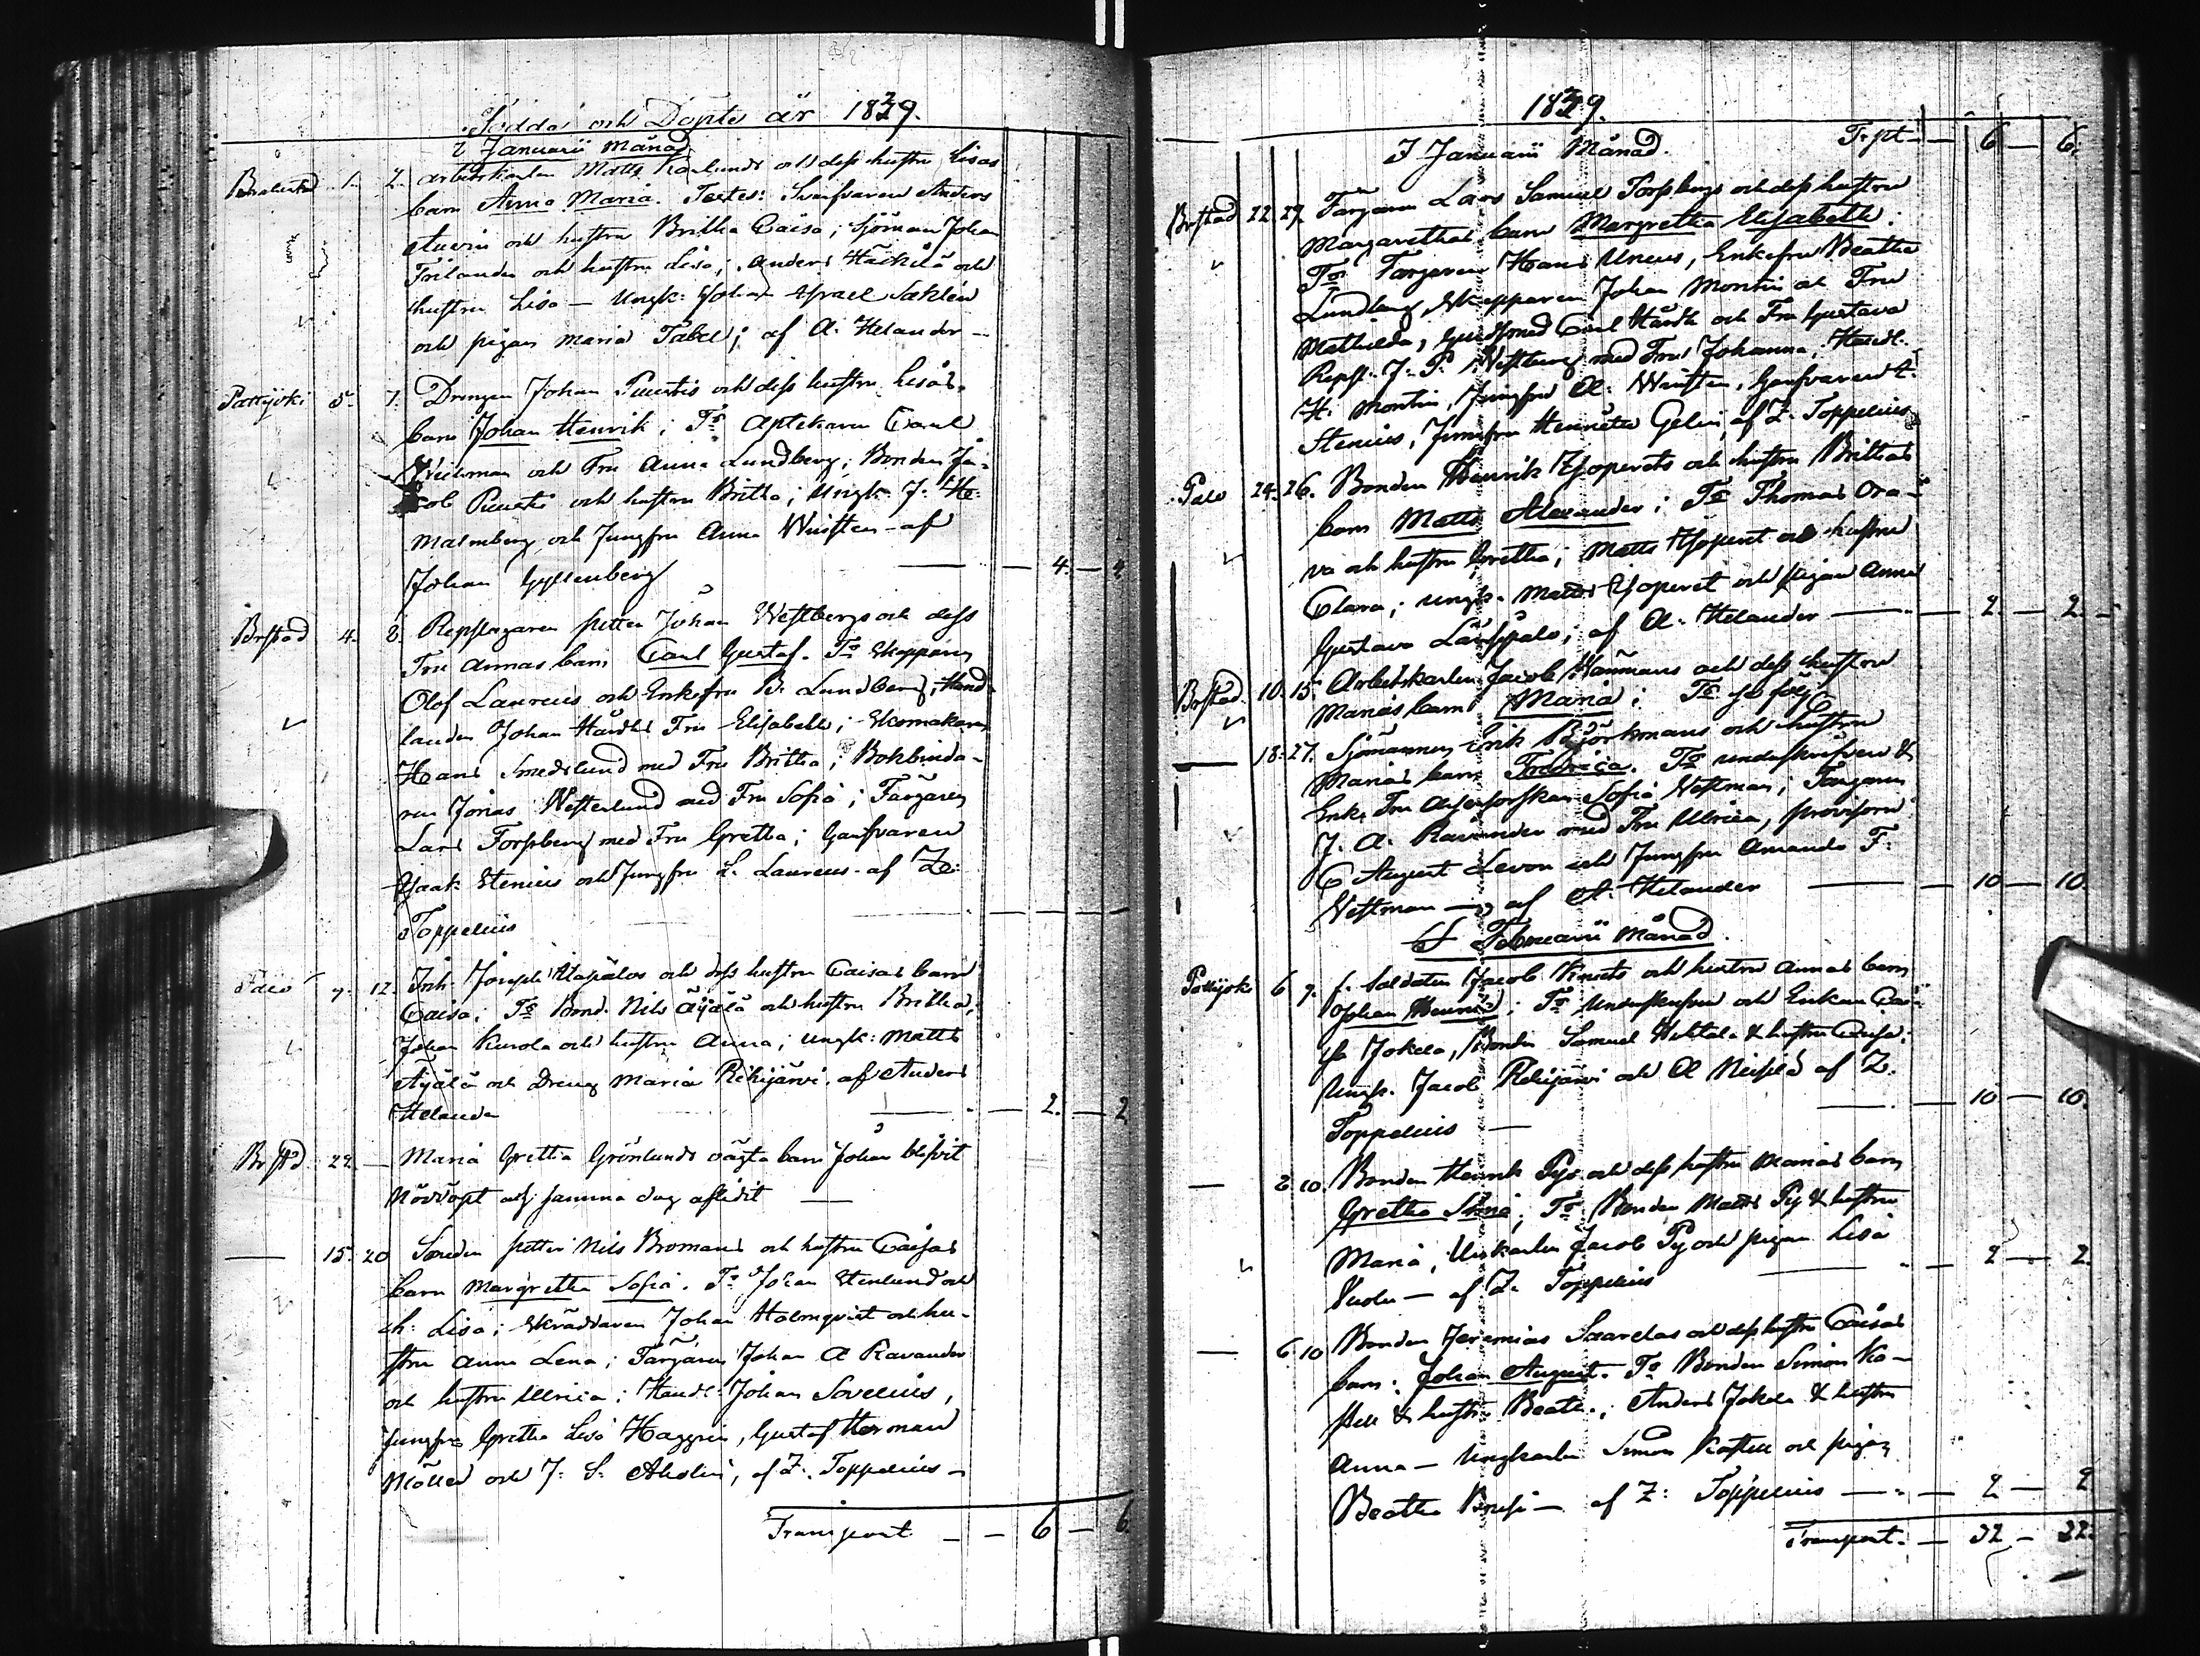 Födda och Döpte år 1829.
i Januarii Månad
Brahestad 1. 2. arbetskarlen Matts Karlunds och dess hustru Lisas
barn Anna Maria. Testes: Svarfvaren Anders
och hustru Britha Caisa; Sjöman Johan
Frilander och hustru Lisa; Anders Häikilä och
hustru Lisa — Ungk: Johan Israel Sahlén
och pigan Maria Tabel; af A. Helander —
Pattijoki 5. 7. Drengen Johan och dess hustru Lisas
barn Johan Henrik; T:s Aptekaren Carl
Weikman och Fru Anna Lundberg; Bonden Ja-
cob och hustru Britha; Ungk. J. He:
Malmberg och Jungfru Anna af
Johan Gyllenberg — 4. — 4
Brstad 4. 8. Repslagaren Petter Johan Westbergs och dess
Fru Annas barn Carl Gustaf. T:s Skepparen
Olof Laureus och Enkefru B. Lundberg; Hand-
landen Johan Hårdhs Fru Elisabeth; Skomakaren
Hans Smedslund med Fru Britha; Bokbinda-
ren Jonas Westerlund med Fru Sofia; Färgaren
Lars Forsberg med Fru Gretha; Garfvaren
Isaak Stenius och Jungfru L. Laureus. af Z:
Toppelius
Palo 9. 12. Inh. Joseph och dess hustru Caisas barn
Caisa; T:s Bond. Nils Äijälä och hustru Britha;
Johan Kurola och hustru Anna; Ungk: Matts
Äijälä och Dreng Maria Relijärvi. af Anders
Helander — 2. — 2
Brstd. 22. — Maria Gretha Grönlunds oägta barn Johan blifvit
Nöddöpt och samma dag aflidit —
— 15. 20 Smeden Petter Nils Bromans och hustru Caisas
barn Margretha Sofia. T:s Johan Stenlund och
h: Lisa; Skräddaren Johan Holmqvist och hu-
stru Anna Lena; Färgaren Johan A Ravander
och hustru Ulrica; Handl: Johan Sovelius,
Jungfru Gretha Lisa Haggrén, Gustaf Herman
Möller och J: S: Aholin, af Z. Toppelius —
Transport — — 6 — 6
1829.
I Januarii Månad. Tr.spt — 6 — 6.
Brstad 22. 27. Färgaren Lars Samuel Forsbergs och dess hustru
Margarethas barn Margretha Elisabeth;
T:s Färgaren Hans Uneus, Enkefru Beatha
Lundberg, Skepparen Johan Montin och Fru
Mathilda, Guldsmed Carl Hårdh och Fru Gustava
Repsl. J. P. Westberg med Fru Johanna, Handl.
H. Montin, Jungfru A. Garfvaren I.
Stenius, Jungfru Henrietta Gelin, af Z. Toppelius
Palo 24. 26. Bonden Henrik och hustru Brithas
barn Matts Alexander; T:s Thomas Ora-
va och hustru Gretha; Matts och hustru
Clara; Ungk. Matts och pigan Anna
Gustava af A. Helander — 2. — 2.
Brstad. 10. 15. Arbetskarlen Jacob Hannmans och dess hustru
Marias barn Maria; T:s
18. 27. Sjömannen Erik Björkmans och hustru
Marias barn Fredrica. T:s undskrifven &
Enke Fru Sofia Westman; Färgaren
J. A. Ravander med Fru Ulrica, Provisorn
C August Levon och Jungfru Amanda F.
Westman — af A. Helander — 10 — 10.
Februarii månad.
Pattijoki 6 9. f. Soldaten Jacob och hustru Annas barn
Johan Henrik; T:s Undskrifven och Enkan Cai-
sa Jokela, Bonden Samuel & hustru Caisa;
Ungk. Jacob Relijärvi och A af Z.
Toppelius — 10 — 10.
— 2. 10. Bonden Henrik Pys och dess hustru Marias barn
Gretha Stina; T:s Bonden Matts Py & hustru
Maria, Unkarlen Jacob Py och pigan Lisa
— af Z. Toppelius — 2 — 2.
— 6 10 Bonden Jeremias Saarelas och dess hustru Caisas
barn: Johan August. T:s Bonden Simon Ka-
stell & hustru Beata; Anders Jokela & hustru
Anna — Ungkarlen Simon Kastell och pigan
Beatha — af Z: Toppelius — 2 — 2
Transport. — 32 — 32.